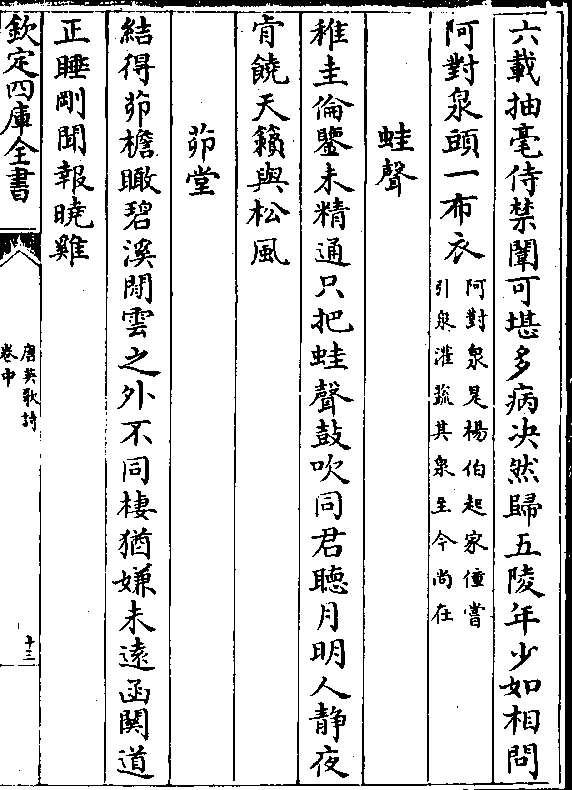 六載抽毫侍禁闈可堪多病決然歸五陵年少如相問
阿對泉頭一布衣
阿對泉是楊伯起家僮嘗
引泉灌蔬其泉至今尚在
蛙聲
稚圭倫鑒未精通只把蛙聲鼓吹同君聽月明人靜夜
肯饒天籟與松風
茆堂
結得茆檐瞰碧溪閒雲之外不同棲猶嫌未遠函關道
正睡剛聞報曉雞
欽定四庫全書
唐英歌詩
卷中
十三